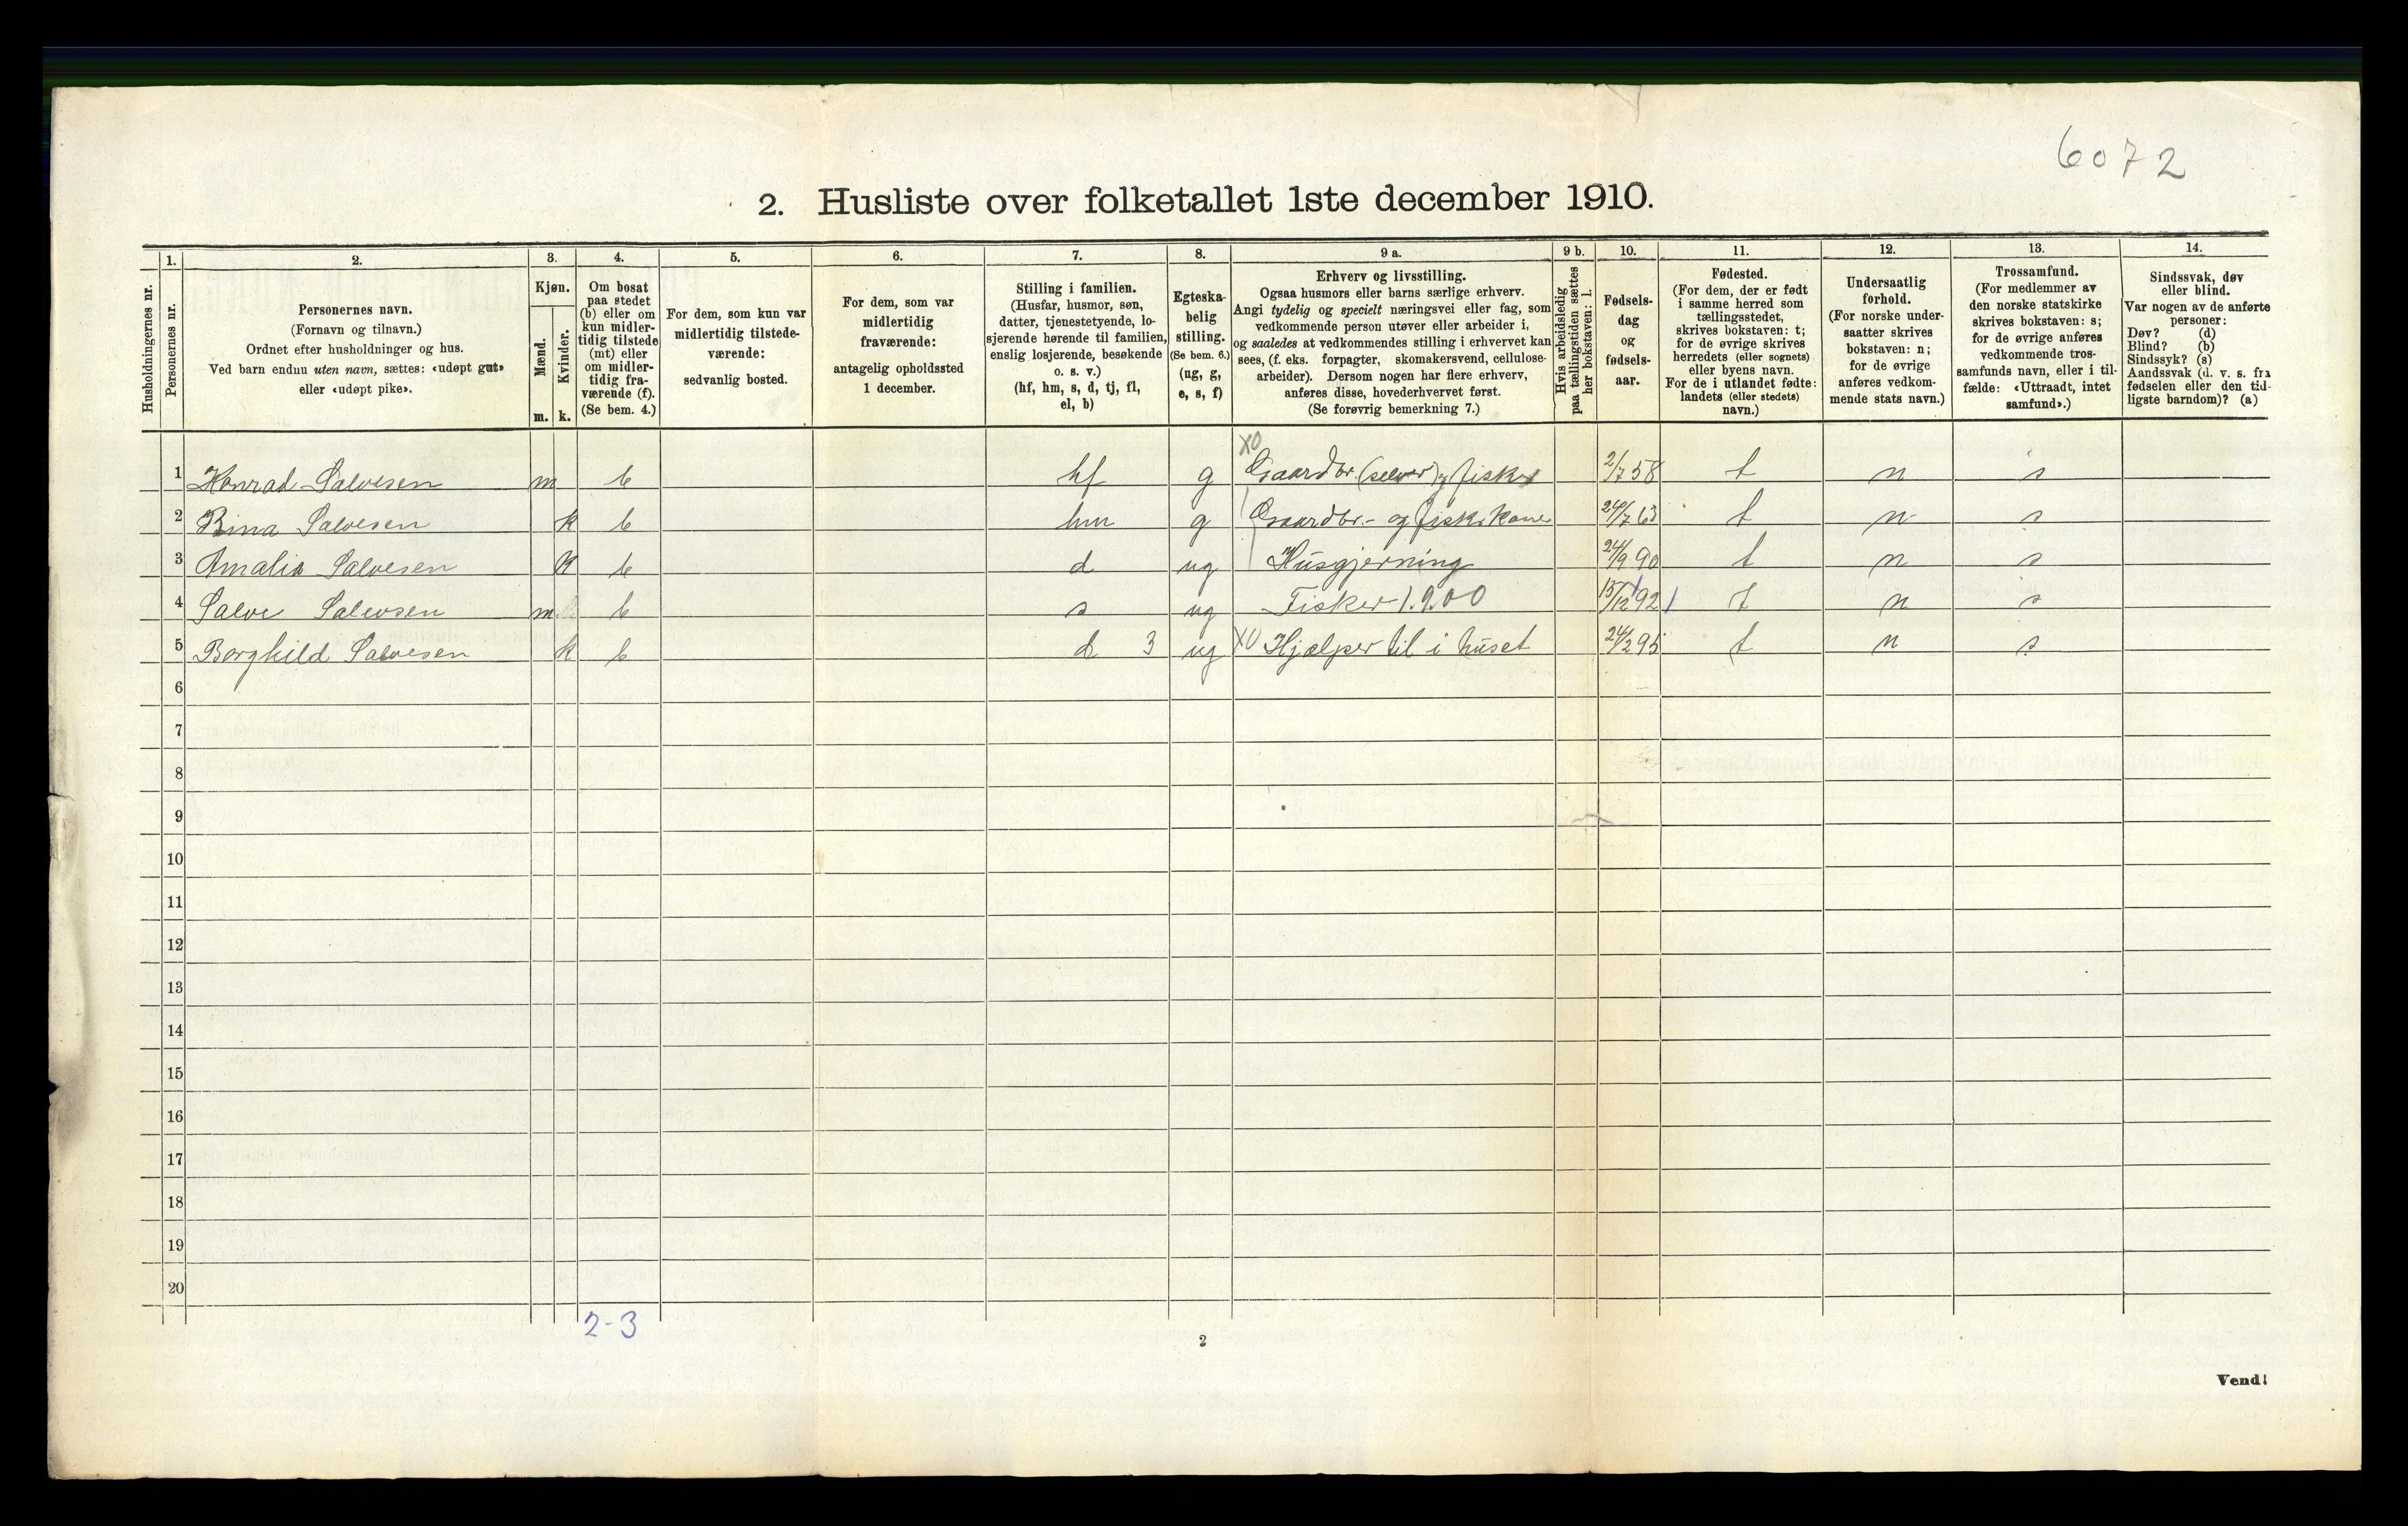 6072
2. Husliste over folketallet 1ste december 1910.
Husholdningernes nr.
1.
Personernes nr.
2.
Personernes navn.
(Fornavn og tilnavn.)
Ordnet efter husholdninger og hus.
Ved barn endnu uten navn, sættes: «udøpt gut»
eller «udøpt pike».
3.
Kjøn.
Mænd.
Kvinder.
m. k.
4.
Om bosat
paa stedet
(b) eller om
kun midler-
tidig tilstede
(mt) eller
om midler-
tidig fra-
værende (f).
(Se bem. 4.)
5.
For dem, som kun var
midlertidig tilstede-
værende:
sedvanlig bosted.
6.
For dem, som var
midlertidig
fraværende:
antagelig opholdssted
1 december.
7.
Stilling i familien.
(Husfar, husmor, søn,
datter, tjenestetyende, lo-
sjerende hørende til familien,
enslig losjerende, besøkende
o. s. v.)
(hf, hm, s, d, tj, fl,
el, b)
8.
Egteska-
belig
stilling.
(Se bem. 6.)
(ug, g,
e, s, f)
9 a.
Erhverv og livsstilling.
Ogsaa husmors eller barns særlige erhverv.
Angi tydelig og specielt næringsvei eller fag, som
vedkommende person utøver eller arbeider i,
og saaledes at vedkommendes stilling i erhvervet kan
sees, (f. eks. forpagter, skomakersvend, cellulose-
arbeider). Dersom nogen har flere erhverv,
anføres disse, hovederhvervet først.
(Se forøvrig bemerkning 7.)
9 b.
Hvis arbeidsledig
paa tællingstiden sættes
her bokstaven: l.
10.
Fødsels-
dag
og
fødsels-
aar.
11.
Fødested.
(For dem, der er født
i samme herred som
tællingsstedet,
skrives bokstaven: t;
for de øvrige skrives
herredets (eller sognets)
eller byens navn.
For de i utlandet fødte:
landets (eller stedets)
navn.)
12.
Undersaatlig
forhold.
(For norske under-
saatter skrives
bokstaven: n;
for de øvrige
anføres vedkom-
mende stats navn.)
13.
Trossamfund.
(For medlemmer av
den norske statskirke
skrives bokstaven: s;
for de øvrige anføres
vedkommende tros-
samfunds navn, eller i til-
fælde: «Uttraadt, intet
samfund».)
14.
Sindssvak, døv
eller blind.
Var nogen av de anførte
personer:
Døv? (d)
Blind? (b)
Sindssyk? (s)
Aandssvak (d. v. s. fra
fødselen eller den tid-
ligste barndom)? (a)
X0
1 Konrad Salvesen m b hf g Gaardbr. (selveier) og fisker 2/7 58 t n s
2 Bina Salvesen k b hm g Gaardbr.- og fiskekone 24/7 63 t n s
3 Amalia Salvesen k b d ug Husgjerning 24/9 90 t n s
4 Salve Salvesen m b s ug Fisker 1.9.00 15/12 92 t n s
5 Borghild Salvesen k b d 3 ug X0 Hjælper til i huset 24/2 95 t n s
6
7
8
9
10
11
12
13
14
15
16
17
18
19
20
2-3
2
Vend!